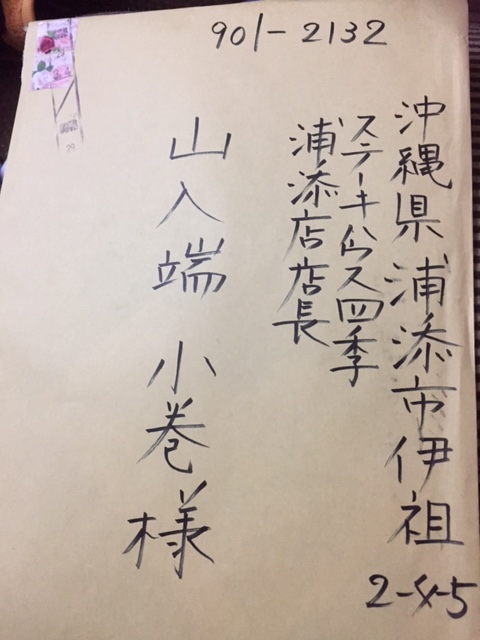 901-2132
沖縄県浦添市伊祖
2-4-5
ステーキハウス四季
浦添店店長
山入端 小巻様